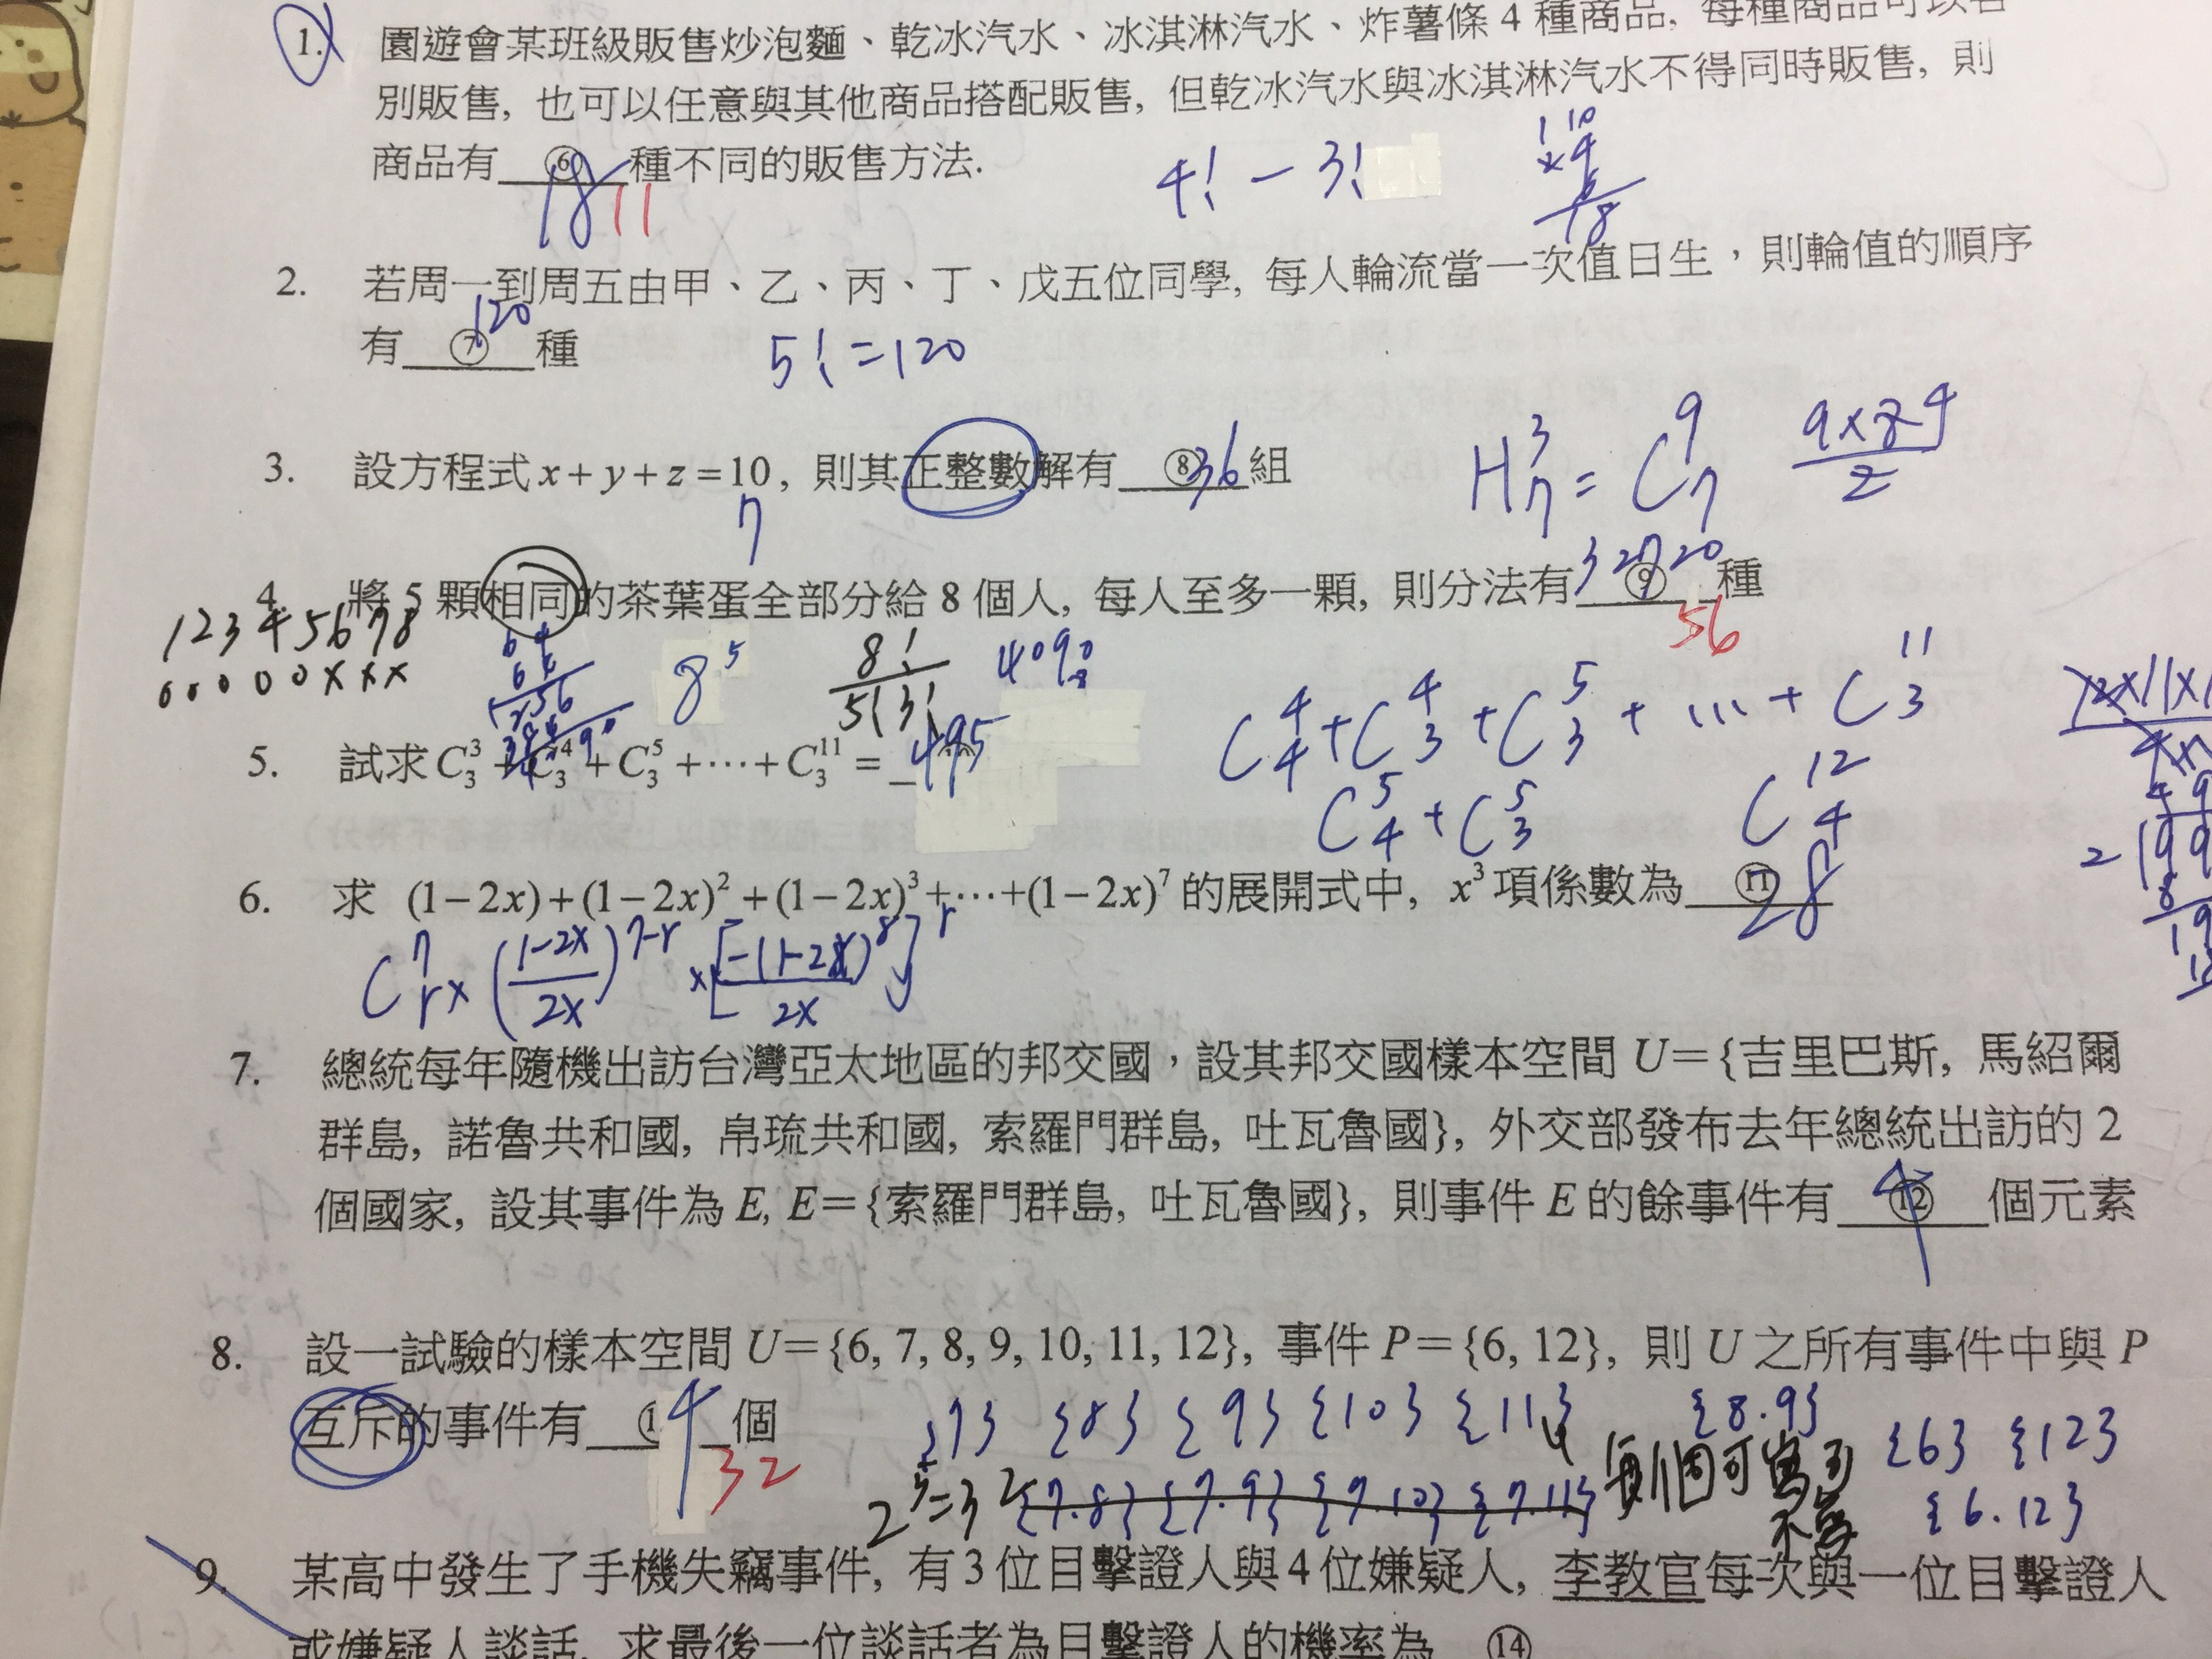 1. 園遊會某班級販售炒泡麵、乾冰汽水、冰淇淋汽水、炸薯條 4 種商品, 每種商品可以各
別販售, 也可以任意與其他商品搭配販售, 但乾冰汽水與冰淇淋汽水不得同時販售, 則
商品有 ⑥ 種不同的販售方法.
18 11
4! - 3!
2. 若周一到周五由甲、乙、丙、丁、戊五位同學, 每人輪流當一次值日生，則輪值的順序
有 ⑦ 種
120
5! = 120
3. 設方程式 x + y + z = 10, 則其正整數解有 ⑧ 組
36
7
H³₇ = C⁹₇
4. 將 5 顆相同的茶葉蛋全部分給 8 個人, 每人至多一顆, 則分法有 ⑨ 種
56
1 2 3 4 5 6 7 8
0 0 0 0 0 x x x
8⁵
8!/5!3!
5. 試求 C³₃ + C⁴₃ + C⁵₃ + ⋯ + C¹¹₃ =
495
C⁴₄ + C⁴₃ + C⁵₃ + ... + C¹¹₃
C⁵₄ + C⁵₃
C¹²₄
6. 求 (1−2x)+(1−2x)²+(1−2x)³+⋯+(1−2x)⁷ 的展開式中, x³ 項係數為 ⑪
28
C⁷ᵣ x ((1-2x)/2x)⁷⁻ʳ x [-(1-2x)⁸/2x]ʳ
7. 總統每年隨機出訪台灣亞太地區的邦交國，設其邦交國樣本空間 U＝{吉里巴斯, 馬紹爾
群島, 諾魯共和國, 帛琉共和國, 索羅門群島, 吐瓦魯國}, 外交部發布去年總統出訪的 2
個國家, 設其事件為 E, E＝{索羅門群島, 吐瓦魯國}, 則事件 E 的餘事件有 ⑫ 個元素
4
8. 設一試驗的樣本空間 U＝{6, 7, 8, 9, 10, 11, 12}, 事件 P＝{6, 12}, 則 U 之所有事件中與 P
互斥的事件有 個
4 32
{7} {8} {9} {10} {11} {8.9} {6} {12}
2⁵=32 {7.8} {7.9} {7.10} {7.11} {6.12}
9. 某高中發生了手機失竊事件, 有 3 位目擊證人與 4 位嫌疑人, 李教官每次與一位目擊證人
或嫌疑人談話, 求最後一位談話者為目擊證人的機率為 ⑭